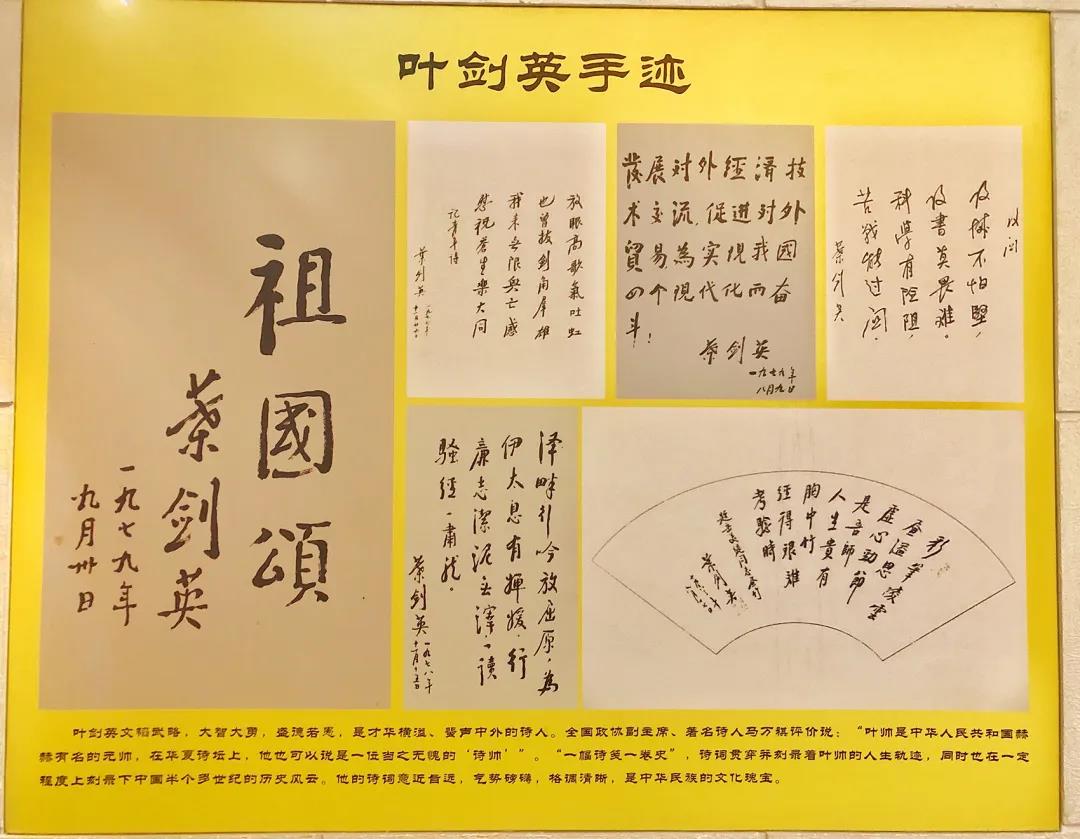 叶剑英手迹
祖國頌
葉剑英
一九七九年
九月卅日
放眼高歌氣吐虹
也曾拔剑角群雄
我来無限興亡感
慰祝蒼生樂大同
記青年诗
葉剑英
發展对外經濟技
术交流,促進对外
貿易,為实現我國
四个現代化而奋
斗!
葉剑英
一九七九年
八月九日
攻関
攻城不怕堅,
攻書莫畏難。
科學有险阻,
苦战能过関.
葉剑英
泽畔行吟放屈原,為
伊太息有婵媛.行
廉志潔泥无滓,一讀
騷經一肅然。
葉剑英
一九七八年
十一月十五日
彩筆凌雲
畫溢思
虛心勁節
是吾師
人生貴有
胸中竹
經得艱難
考驗時
葉剑英
叶剑英文韬武略，大智大勇，盛德若愚，是才华横溢、蜚声中外的诗人。全国政协副主席、著名诗人马万祺评价说：“叶帅是中华人民共和国赫
赫有名的元帅，在华夏诗坛上，他也可以说是一位当之无愧的‘诗帅’”。“一幅诗笺一卷史”，诗词贯穿并刻录着叶帅的人生轨迹，同时也在一定
程度上刻录下中国半个多世纪的历史风云。他的诗词意近旨远，气势磅礴，格调清晰，是中华民族的文化瑰宝。